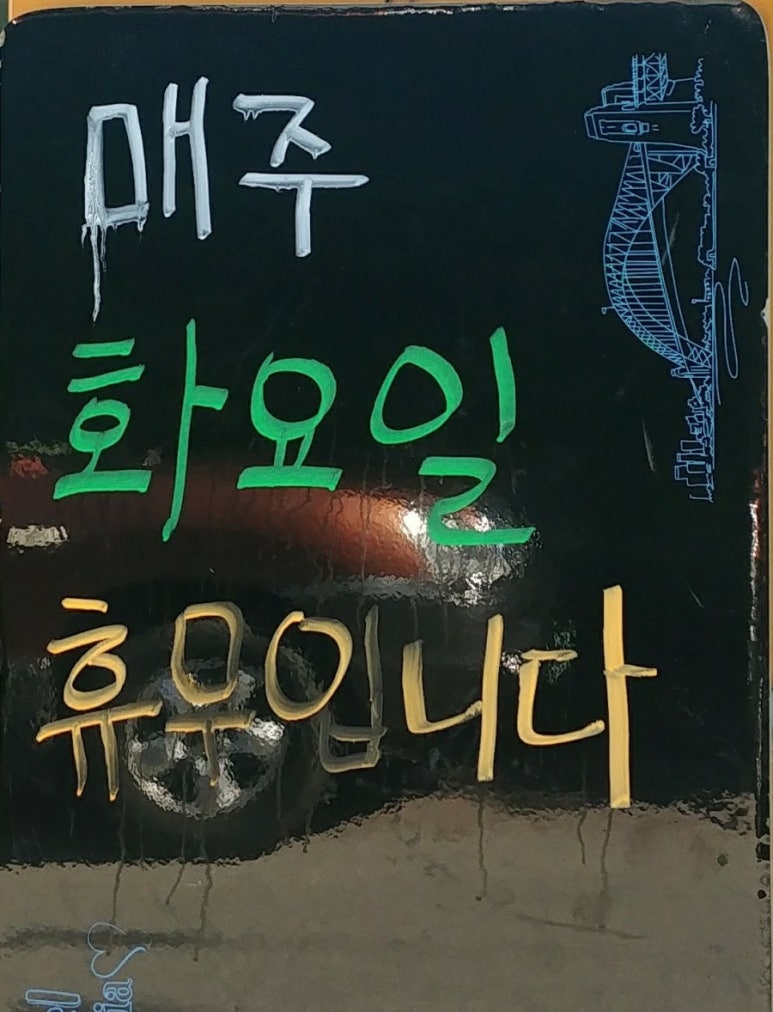 매주
화요일
휴무입니다